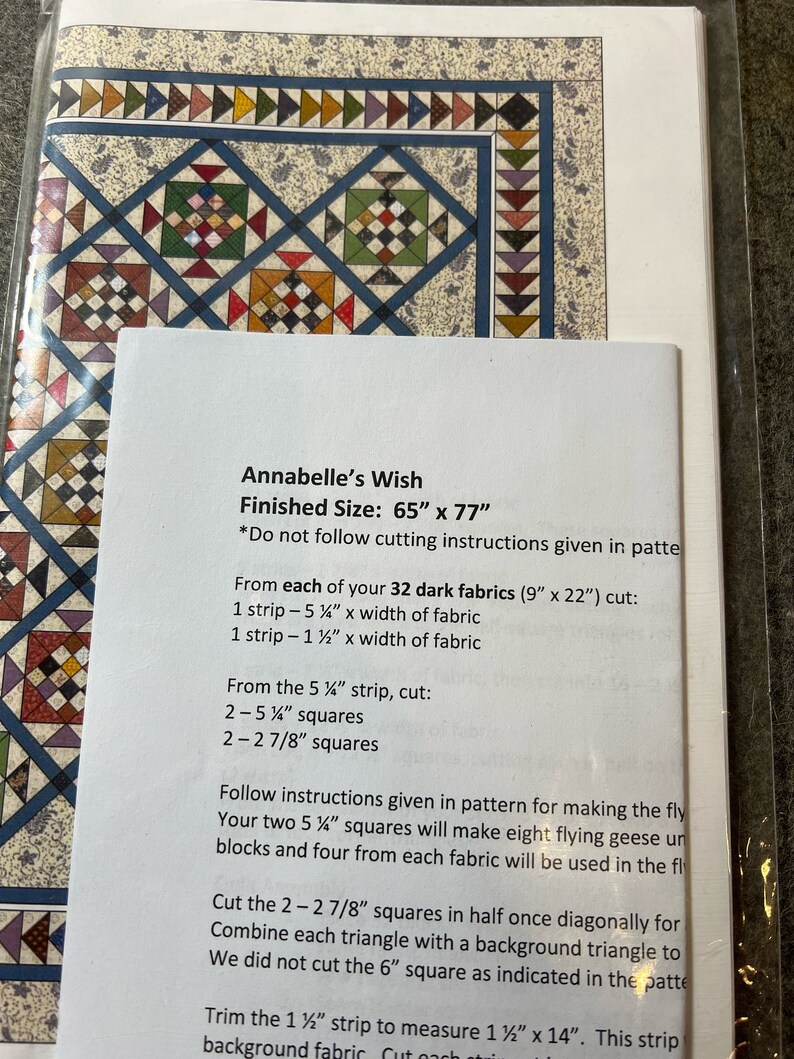 Annabelle's Wish
Finished Size: 65” x 77”
*Do not follow cutting instructions given in patte
From each of your 32 dark fabrics (9” x 22”) cut:
1 strip – 5 ¼” x width of fabric
1 strip – 1 ½” x width of fabric
From the 5 ¼” strip, cut:
2 – 5 ¼” squares
2 – 2 7/8” squares
Follow instructions given in pattern for making the fly
Your two 5 ¼” squares will make eight flying geese un
blocks and four from each fabric will be used in the fl
Cut the 2 – 2 7/8” squares in half once diagonally for
Combine each triangle with a background triangle to
We did not cut the 6” square as indicated in the patte
Trim the 1 ½” strip to measure 1 ½” x 14”. This strip
background fabric. Cut each